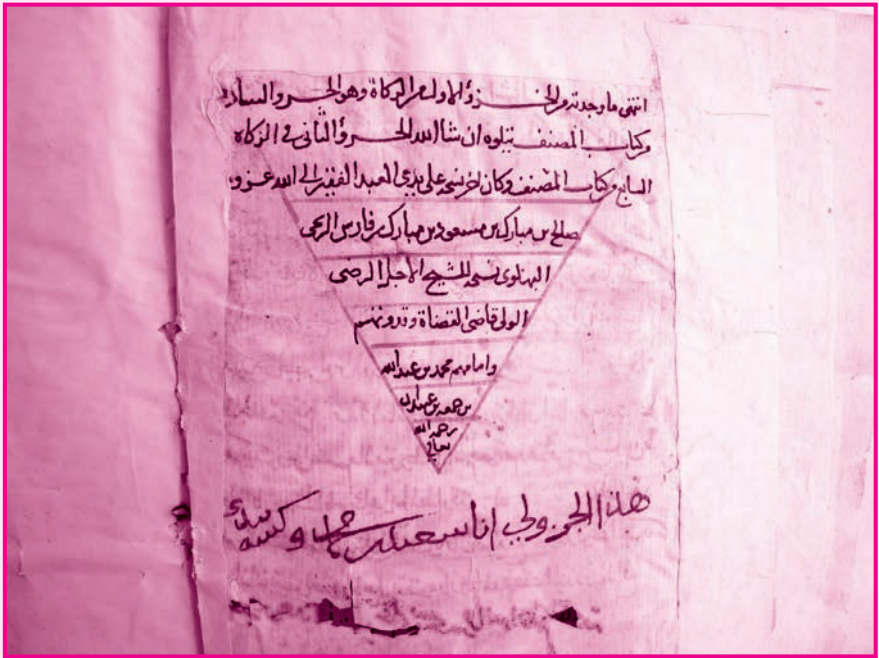 انتهى ما وجدته من الجزؤ الاول من الزكاة وهو الجزو السادس
من كتاب المصنف يتلوه ان شا الله الجزؤ الثاني في الزكاة
السابع من كتاب المصنف وكان اخر نسخه على يدي العبد الفقير الى الله عز و
صالح بن مبارك بن مسعود بن مبارك بن فارس الربحي
البهلوي نسخه للشيخ الاجل الرضي
الولي قاضي القضاة وقدوتهم
وامامهم محمد بن عبدالله
بن جمعه بن عبيدان
رحمه الله
تعالى
هذا الجزو لي انا سعيد بن
وكتبه بيده